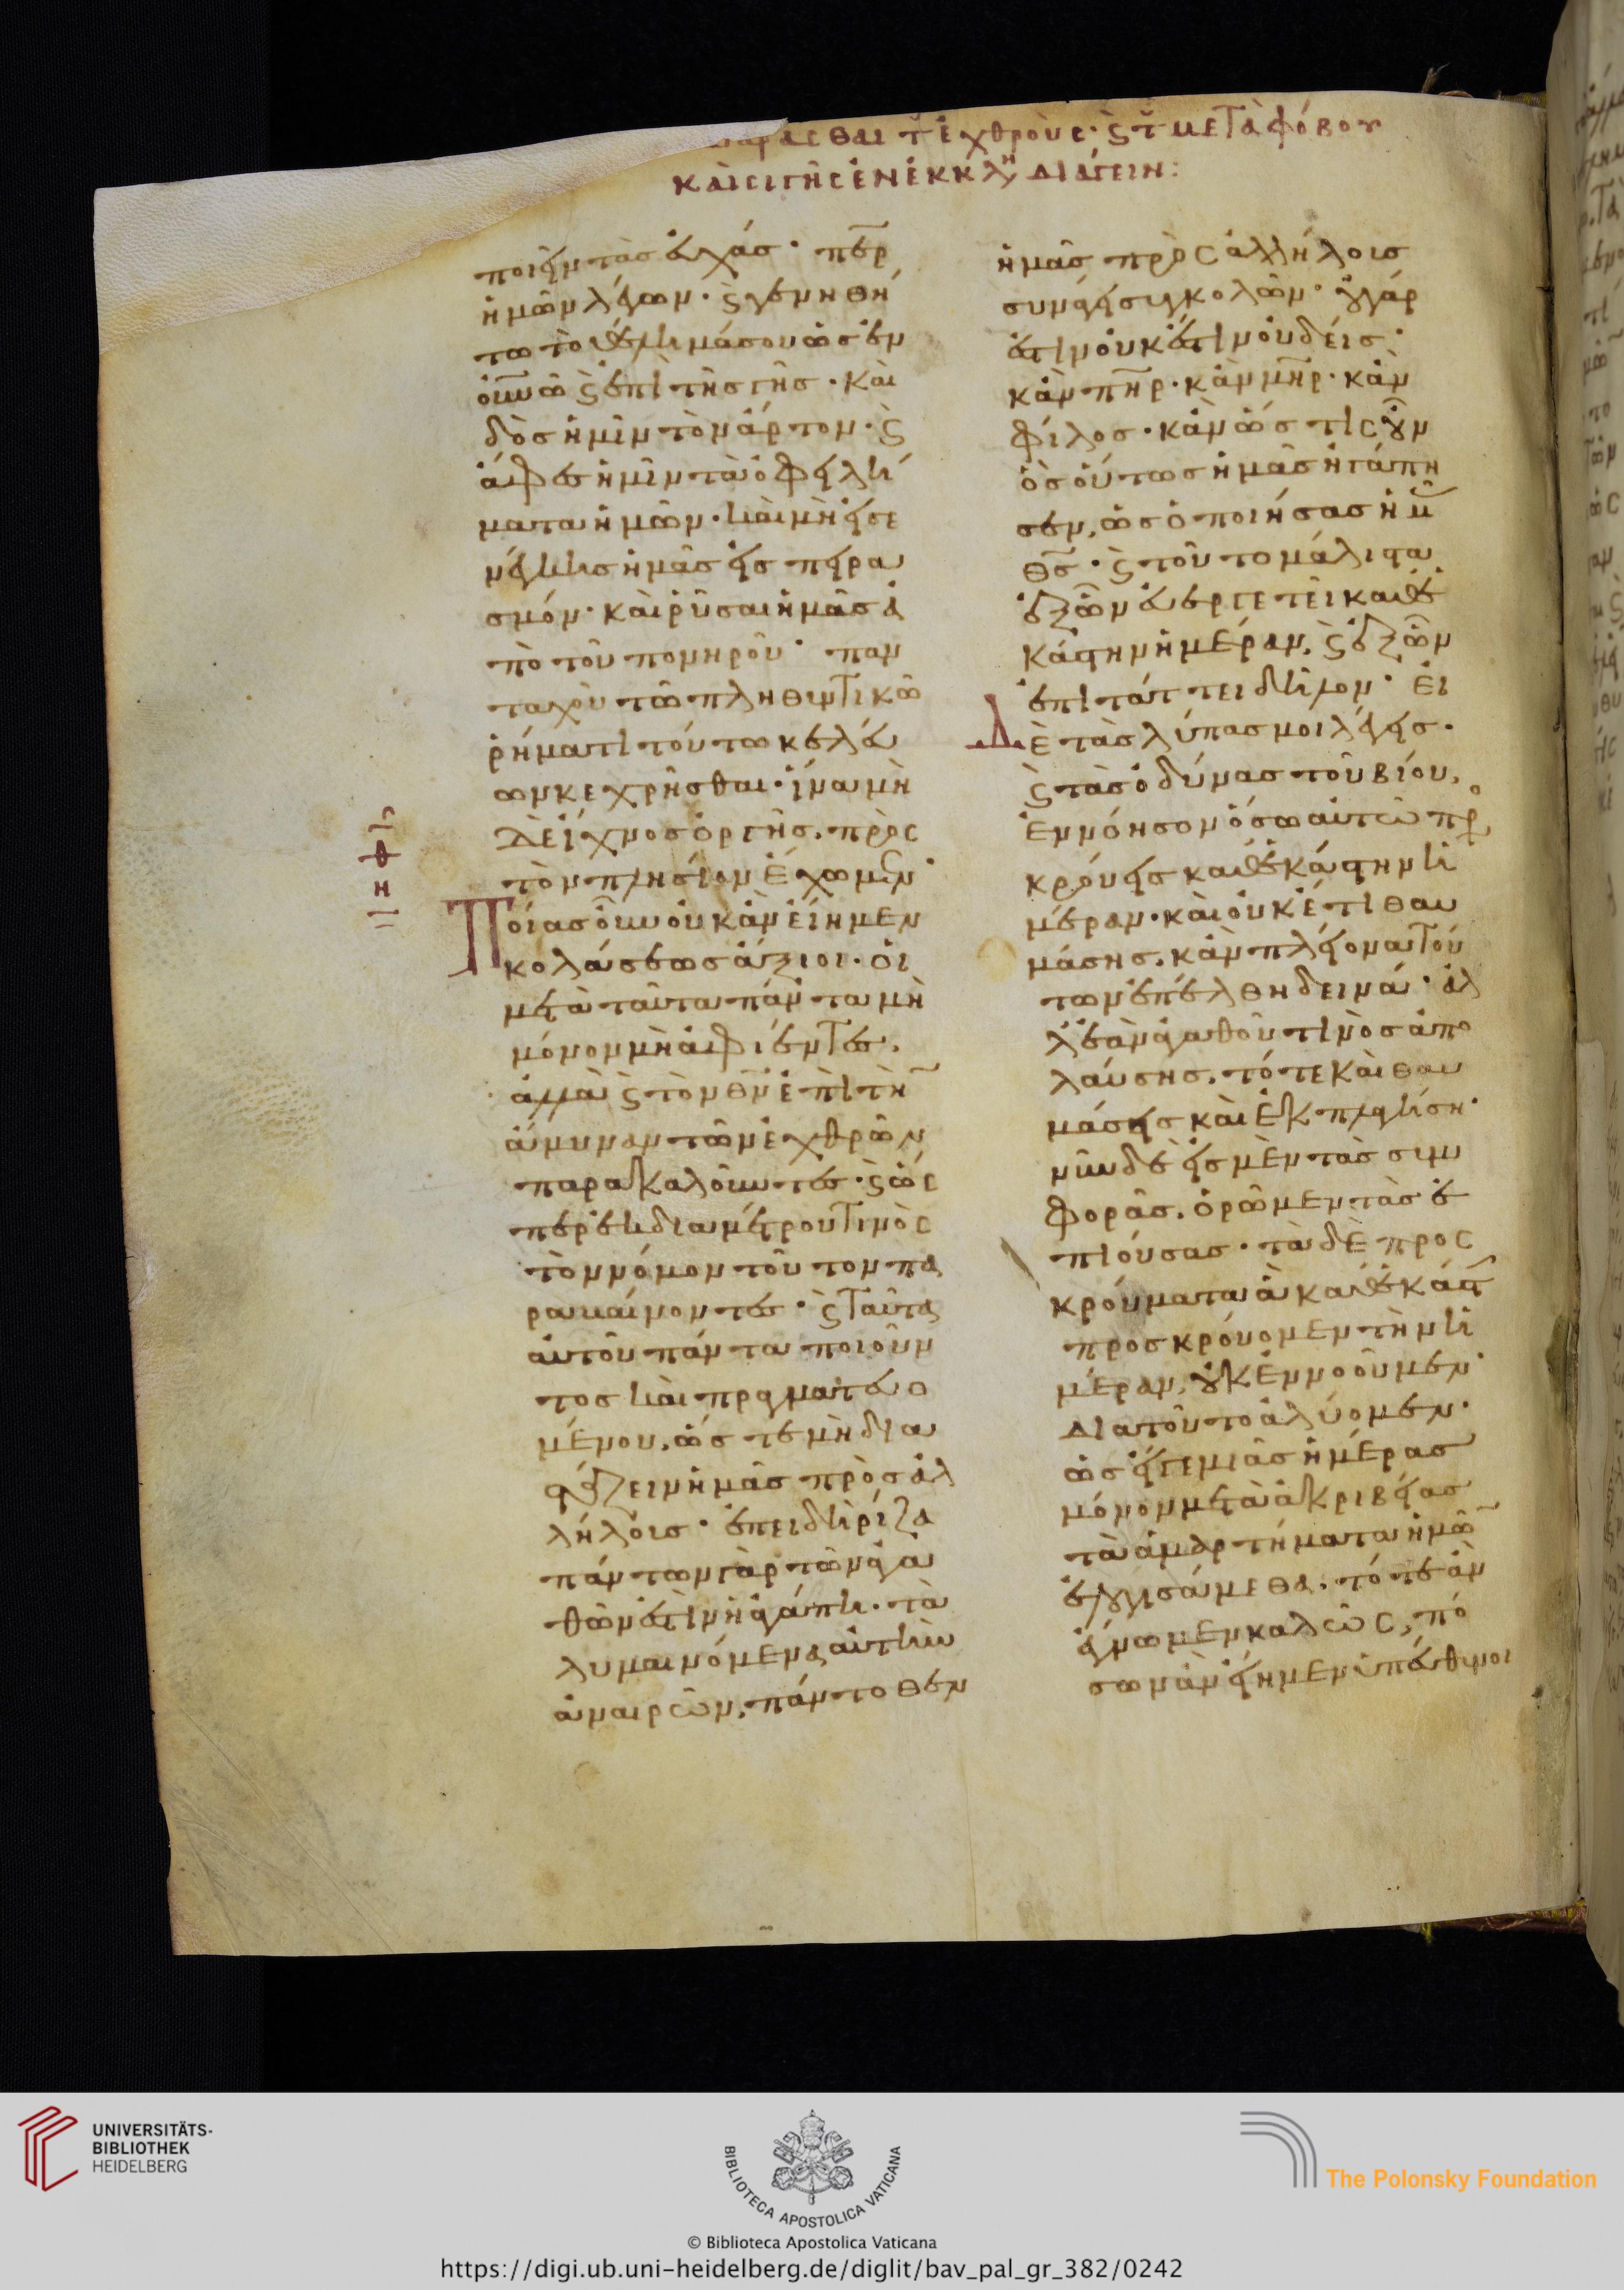 ἐχθρούς· ϛ μετὰ φόβου
καὶ σιγῆς ἐν ἐκκλη διάγειν:
ποιεῖν τὰς εὐχάς· περ
ἡμῶν λέγων· ϛ γενηθή
τω τὸ θέλημά σου ὡς ἐν
οὐνῶ ϛ ἐπὶ τῆς γῆς· καὶ
δὸς ἡμῖν τὸν ἄρτον· ϛ
ἄφες ἡμῖν τὰ ὀφειλή
ματα ἡμῶν· καὶ μὴ εἰσε
νέγκης ἡμᾶς εἰς πειρα
σμόν· καὶ ῥῦσαι ἡμᾶς ἀ
πὸ τοῦ πονηροῦ· παν
ταχοῦ τῶ πληθυντικῶ
ῥήματι τούτω κελεύ
ων κεχρῆσθαι· ἵνα μὴ
δὲ ἴχνος ὀργῆς, πρὸς
τὸν πλησίον ἔχωμεν·
Ποίας οὖν οὐκ ἂν εἴημεν
κολάσεως ἄξιοι· οἱ
μετὰ ταῦτα πάντα μὴ
μόνον μὴ ἀφιέντες,
ἀλλὰ ϛ τὸν θν ἐπὶ τὴ
ἄμυναν τῶν ἐχθρῶν
παρακαλοῦντες· ϛ ὥσ
περ ἐκ διαμέτρου τινὸς
τὸν νόμον τοῦτον πα
ραβαίνοντες· ϛ ταῦτα
αὐτοῦ πάντα ποιοῦν
τος καὶ πραγματευο
μένου, ὥστε μὴ δια
στάζειν ἡμᾶς πρὸς ἀλ
λήλους· ἐπειδὴ ῥίζα
πάντων γὰρ τῶν ἀγα
θῶν ἐστὶν ἡ ἀγάπη· τὰ
λυμαινόμενα αὐτὴν
ἀναιρῶν, πάντοθεν
ἡμᾶς πρὸς ἀλλήλους
συνάγει συγκολῶν· οὐ γάρ
ἐστιν οὐκ ἔστιν οὐδείς·
κἂν πηρ· κἂν μηρ· κἂν
φίλος· κἂν ὅστις οὖν
ὃς οὕτως ἡμᾶς ἠγάπη
σεν, ὡς ὁ ποιήσας ἡμ
θς· ϛ τοῦτο μάλιστα
ἐξ ὧν εὐεργετεῖ καθ ἑ
κάστην ἡμέραν, ϛ ἐξ ὧν
ἐπιτάττει δῆλον· εἰ
δὲ τὰς λύπας μοι λέγεις·
ϛ τὰς ὀδύνας τοῦ βίου,
ἐννόησον ὅσα αὐτῶ προσ
κρούεις καθ ἑκάστην ἡ
μέραν· καὶ οὐκέτι θαυ
μάσης, κἂν πλείονα τού
των ἐπέλθη δεινά· ἀλ
λ ἐὰν ἀγαθοῦ τινὸς ἀπο
λαύσης, τότε καὶ θαυ
μάσεις καὶ ἐκπλαγήση·
νῦν δὲ εἰς μὲν τὰς συμ
φορὰς, ὁρῶμεν τὰς ἐ
πιούσας· τὰ δὲ προς
κρούματα ἃ καθ ἑκάστ
προσκρούομεν τὴν ἡ
μέραν, οὐκ ἐννοοῦμεν·
διὰ τοῦτο ἀλύομεν·
ὡς εἴγε μιᾶς ἡμέρας
μόνον μετὰ ἀκριβείας
τὰ ἁμαρτήματα ἡμῶ
ἐλογισάμεθα, τότε ἂν
ἔγνωμεν καλῶς, πό
σων ἂν εἴημεν ὑπεύθυνοι
UNIVERSITÄTS-
BIBLIOTHEK
HEIDELBERG
BIBLIOTECA APOSTOLICA VATICANA
© Biblioteca Apostolica Vaticana
The Polonsky Foundation
https://digi.ub.uni-heidelberg.de/diglit/bav_pal_gr_382/0242